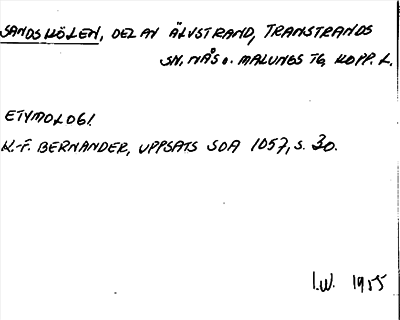 SANDSKÖLEN, DEL AV ÄLVSTRAND, TRANSTRANDS
SN, NÅS o. MALUNGS TG, KOPP. L.
ETYMOLOGI.
K.-F. BERNANDER, UPPSATS SOA 1057, s. 30.
I.W. 1955